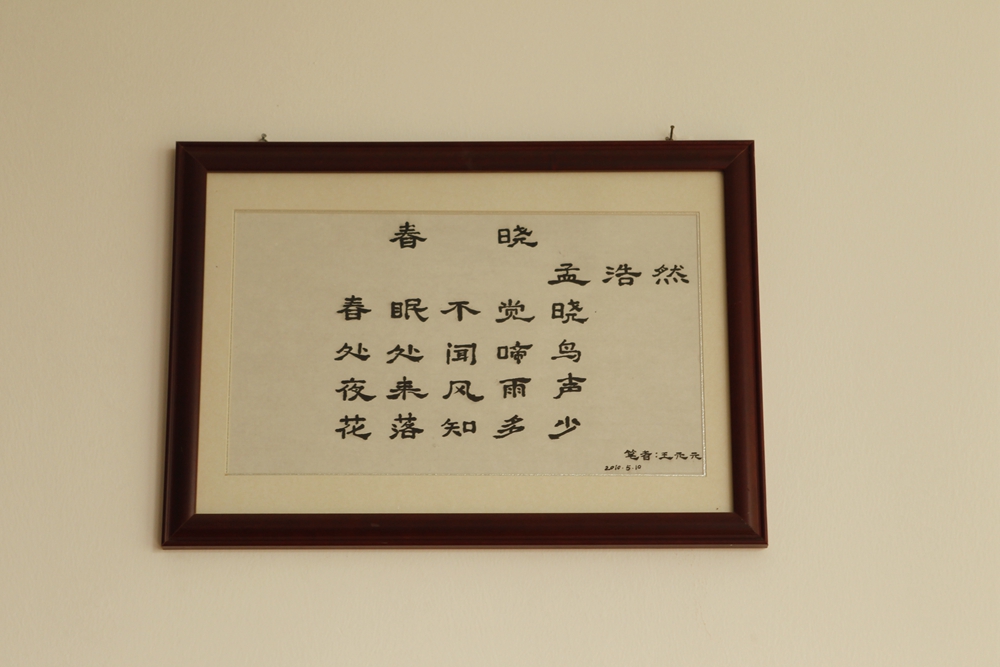 春 晓
孟浩然
春眠不觉晓
处处闻啼鸟
夜来风雨声
花落知多少
笔者:王
2010.5.10